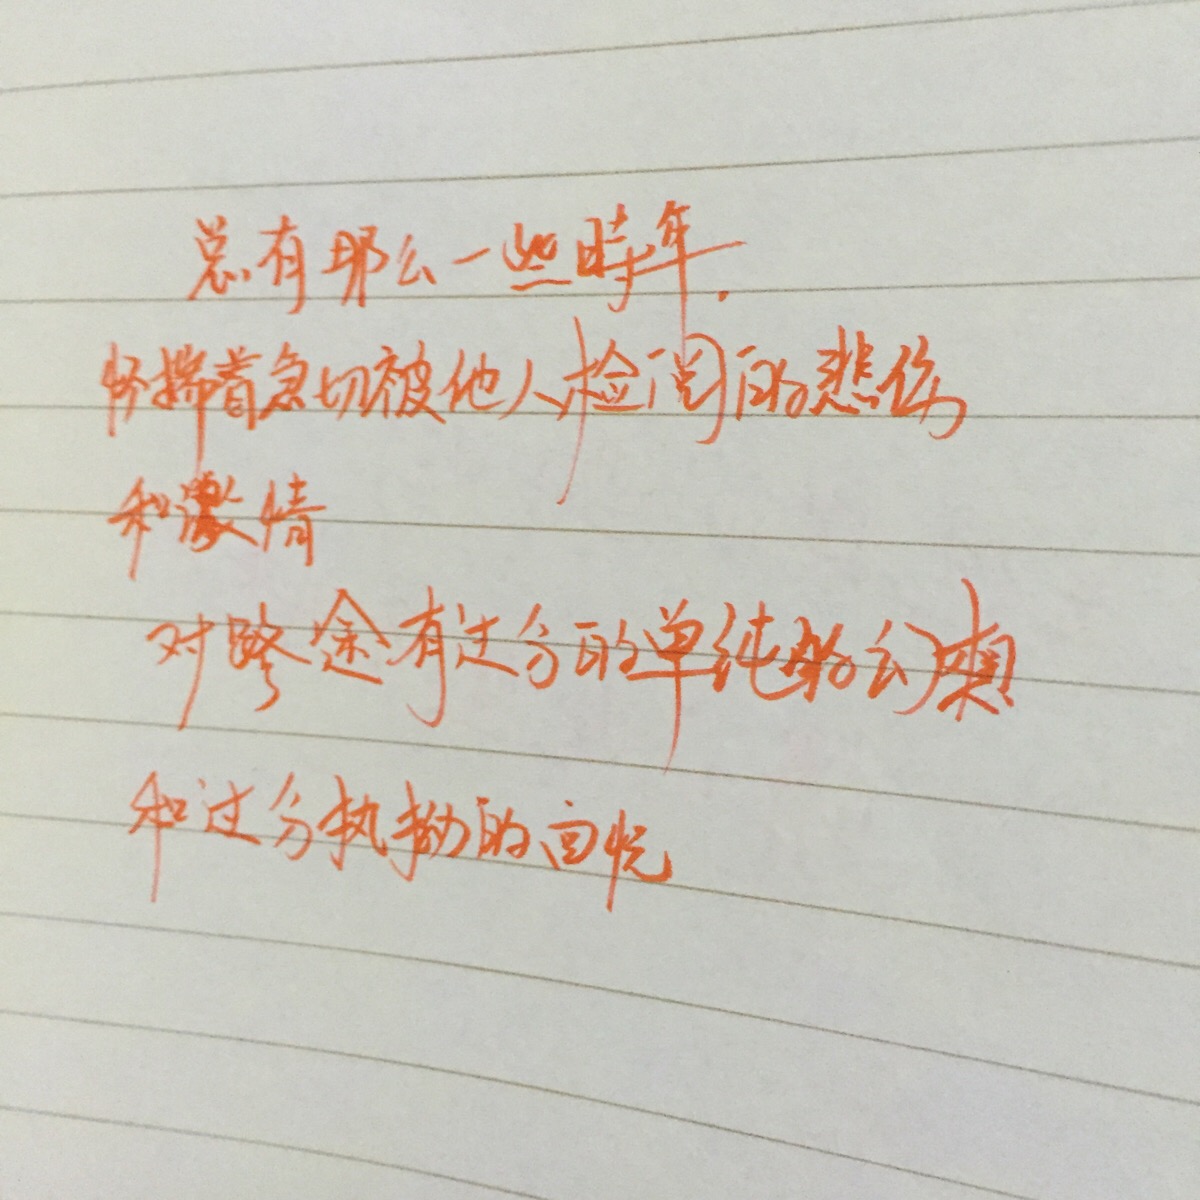 总有那么一些時年.
怀揣着急切被他人检阅的悲伤
和激情
对路途有过分的单纯和幻想
和过分执拗的回忆